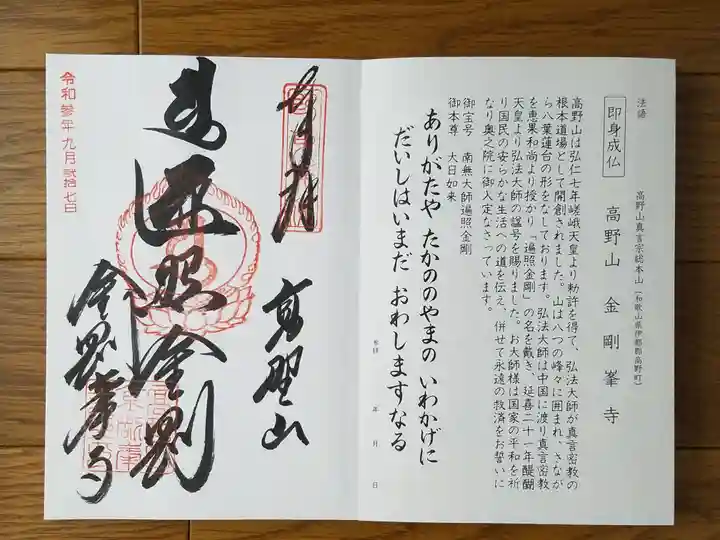 法語
即身成仏
高野山真言宗総本山（和歌山県伊都郡高野町）
高野山 金剛峯寺
高野山は弘仁七年嵯峨天皇より勅許を得て、弘法大師が真言密教の
根本道場として開創されました。山は八つの峰々に囲まれ、さなが
ら八葉蓮台の形をなしております。弘法大師は中国に渡り真言密教
を恵果和尚より授かり「遍照金剛」の名を戴き、延喜二十一年醍醐
天皇より弘法大師の諡号を賜りました。お大師様は国家の平和を祈
り国民の安らかな生活への道を伝え、併せて永遠の救済をお誓いに
なり奥之院に御入定なさっています。
御宝号 南無大師遍照金剛
御本尊 大日如来
ありがたや たかののやまの いわかげに
だいしはいまだ おわしますなる
年 月 日
奉拝
高野山
遍照金剛
金剛峯寺
令和参年九月弐拾七日